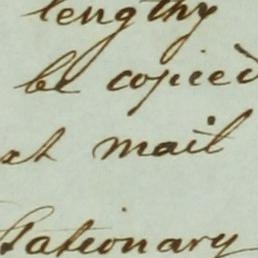 lengthy
be copied
at mail
Stationary